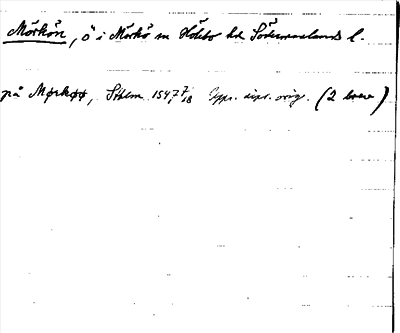 Mörkön, ö i Mörkö sn Hölebo hd Södermanlands l.
på Mørkøø, Sthlm 1547 7/18 Uppr. dipl. orig. (2 brev)